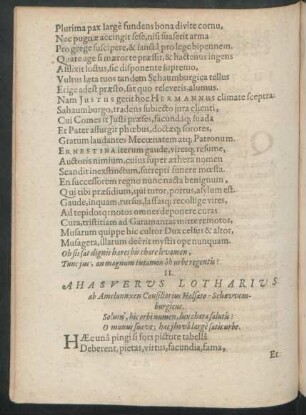 Plurima pax largè fundens bona divite cornu,
Nec pugnæ accingit sese, nisi sua serit arma
Pro grege suscipere, & sanctâ pro lege bipennem.
Quare age si mœror te præssit, & hactenus ingens
Afflixit luctus, sic disponente supremo,
Vultus læta tuos tandem Schaumburgica tellus
Erige adest præsto, sat quo releveris, alumnus.
Nam JUSTUS gerit hoc HERMANNUS climate sceptra
Schaumburgo, tradens subjecto jura clienti,
Cui Comes it Justi præses, facundæq; suada
Et Pater assurgit phœbus, doctæq; sorores,
Gratum laudantes Mecœnatem atq; Patronum.
ERNESTINA iterum gaude, viresq; resume,
Auctoris nimium, cujus super æthera nomen
Scandit inextinctum, strepuit funere mœsta.
En successorem regno nunc nacta benignum,
Qui tibi præsidium, qui tutor, portus, asylum est.
Gaude, inquam, rursus, lassasq; recollige vires,
Ad tepidosq; notos omne deponere curas
Cura, tristitiam ad Garamantas mitte remotos,
Musarum quippe hic cultor Dux celsus & altor,
Musageta, illarum decrit mystis ope nunquam.
Oh sis sat dignis hares hic chare levamen,
Tunc jus, an magnum tutamen ob urbe regentis!
II.
AHASVERUS LOTHARIUS
ab Amelunnxen Consiliarius Holsato-Schavvem-
burgicus.
Solum, hic orbi numen, lux chara salutis:
O manus suave; hac phro largè satis urbe.
HÆc unâ pingi si fors pictutę tabellâ
Deberent, pietas, virtus, facundia, fama,
Et